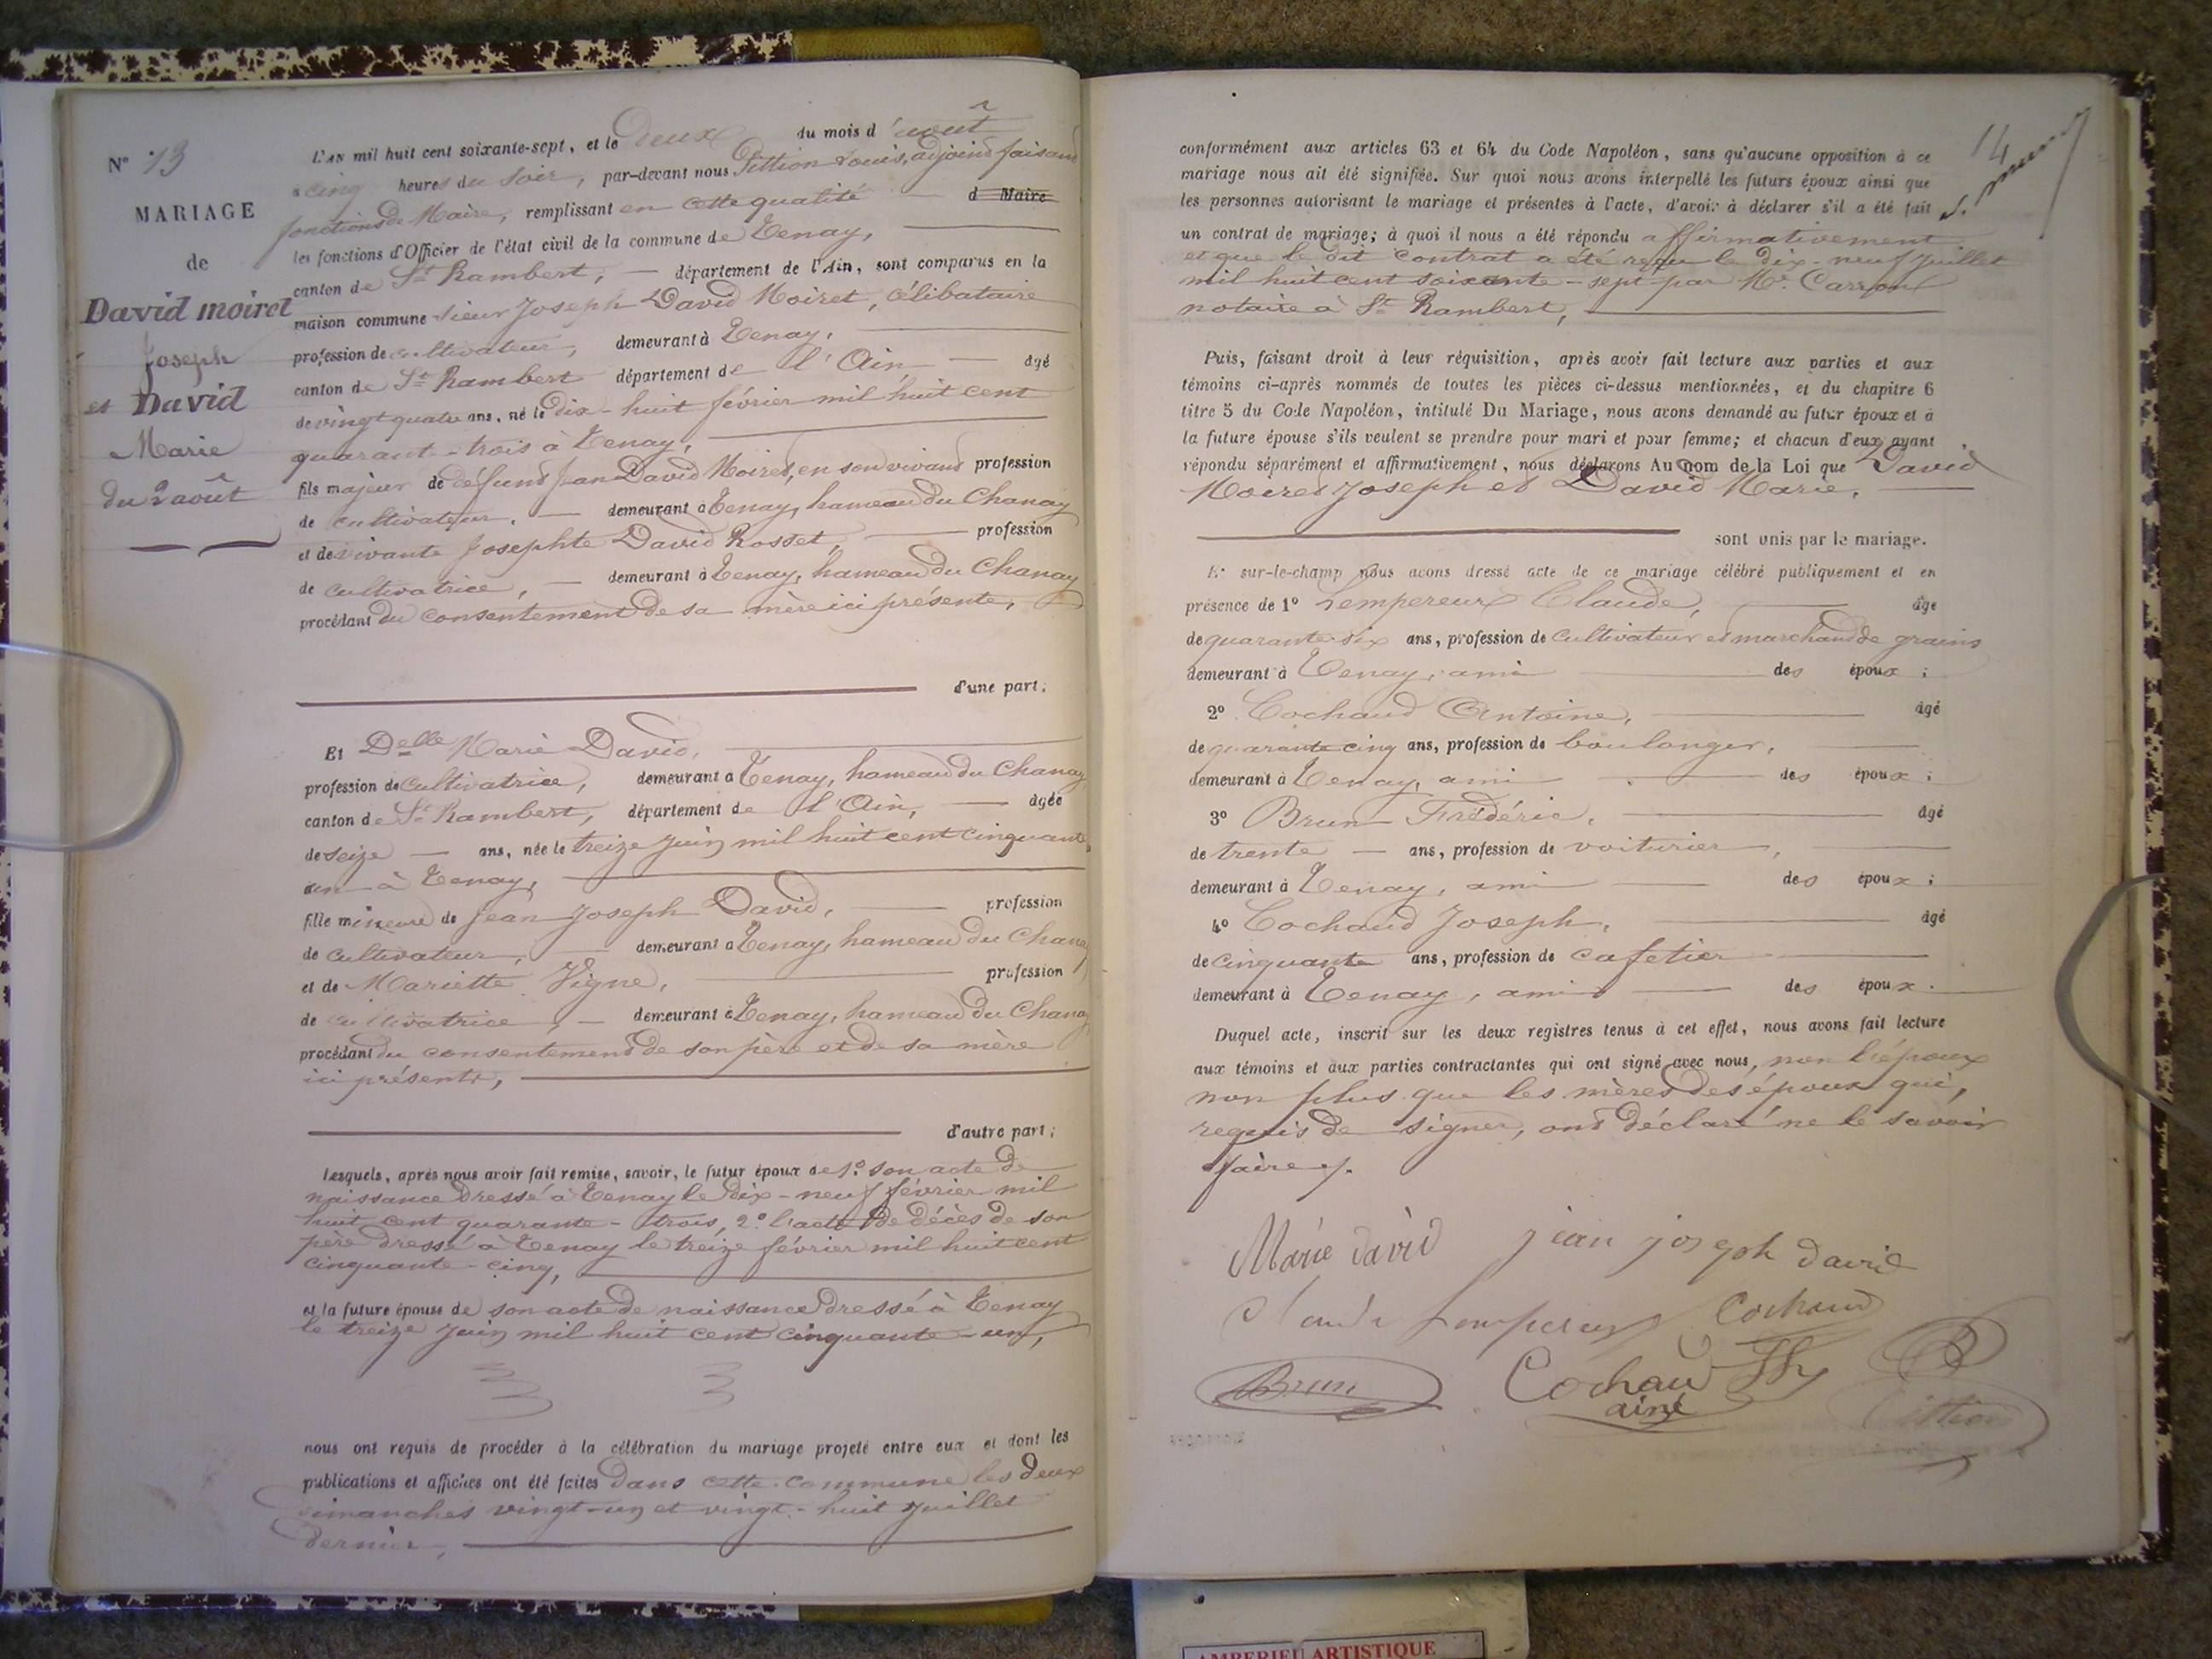 N° 13
MARIAGE
de
David moiret
Joseph
et David
Marie
du 2 août
L'AN mil huit cent soixante-sept, et le deux du mois d'août
à cinq heures du soir, par-devant nous Pittion Louis, adjoint faisant
fonctions de Maire, remplissant en cette qualité d Maire
les fonctions d'Officier de l'état civil de la commune de Tenay,
canton de St Rambert, département de l'Ain, sont comparus en la
maison commune sieur Joseph David Moiret, célibataire
profession de cultivateur, demeurant à Tenay,
canton de St Rambert département de l'Ain âgé
de vingt quatre ans, né le dix-huit février mil huit cent
quarant-trois à Tenay,
fils majeur de défunt Jean David Moiret, en son vivant profession
de cultivateur, demeurant à Tenay, hameau du Chanay
et de vivante Josephte David Rosset, profession
de cultivatrice, demeurant à Tenay, hameau du Chanay
procédant du consentement de sa mère ici présente,
d'une part;
Et Delle Marie David,
profession de cultivatrice, demeurant à Tenay, hameau du Chanay
canton de St Rambert, département de l'Ain, âgée
de seize ans, née le treize juin mil huit cent cinquante
un à Tenay,
fille mineure de Jean Joseph David, profession
de cultivateur, demeurant à Tenay, hameau du Chanay
et de Mariette Vigne, profession
de cultivatrice, demeurant à Tenay, hameau du Chanay
procédant du consentement de son père et de sa mère
ici présents,
d'autre part;
Lesquels, après nous avoir fait remise, savoir, le futur époux de 1° son acte de
naissance dressé à Tenay le dix-neuf février mil
huit cent quarante-trois, 2° l'acte de décès de son
père dressé à Tenay le treize février mil huit cent
cinquante-cinq,
et la future épouse de son acte de naissance dressé à Tenay
le treize juin mil huit cent cinquante-un,
nous ont requis de procéder à la célébration du mariage projeté entre eux et dont les
publications et affiches ont été faites dans cette commune les deux
dimanches vingt-un et vingt-huit juillet
dernier,
14
conformément aux articles 63 et 64 du Code Napoléon, sans qu'aucune opposition à ce
mariage nous ait été signifiée. Sur quoi nous avons interpellé les futurs époux ainsi que
les personnes autorisant le mariage et présentes à l'acte, d'avoir à déclarer s'il a été fait
un contrat de mariage; à quoi il nous a été répondu affirmativement
et que le dit contrat a été reçu le dix-neuf juillet
mil huit cent soixante-sept par Me Carron
notaire à St Rambert,
Puis, faisant droit à leur réquisition, après avoir fait lecture aux parties et aux
témoins ci-après nommés de toutes les pièces ci-dessus mentionnées, et du chapitre 6
titre 5 du Code Napoléon, intitulé Du Mariage, nous avons demandé au futur époux et à
la future épouse s'ils veulent se prendre pour mari et pour femme; et chacun d'eux ayant
répondu séparément et affirmativement, nous déclarons Au nom de la Loi que David
Moiret Joseph et David Marie,
sont unis par le mariage.
Et sur-le-champ nous avons dressé acte de ce mariage célébré publiquement et en
présence de 1° Lempereur Claude, âgé
de quarante-six ans, profession de cultivateur et marchand de grains
demeurant à Tenay, ami des époux;
2° Cochaud Antoine, âgé
de quarante cinq ans, profession de boulanger,
demeurant à Tenay, ami des époux;
3° Brun Frédéric, âgé
de trente ans, profession de voiturier,
demeurant à Tenay, ami des époux;
4° Cochaud Joseph, âgé
de cinquante ans, profession de cafetier
demeurant à Tenay, ami des époux.
Duquel acte, inscrit sur les deux registres tenus à cet effet, nous avons fait lecture
aux témoins et aux parties contractantes qui ont signé avec nous, non l'époux
non plus que les mères des époux qui,
requis de signer, ont déclaré ne le savoir
faire
Marie david jean joseph david
Claude Lempereur Cochaud
Brun Cochaud Jh
ainé Pittion
AMBERIEU ARTISTIQUE